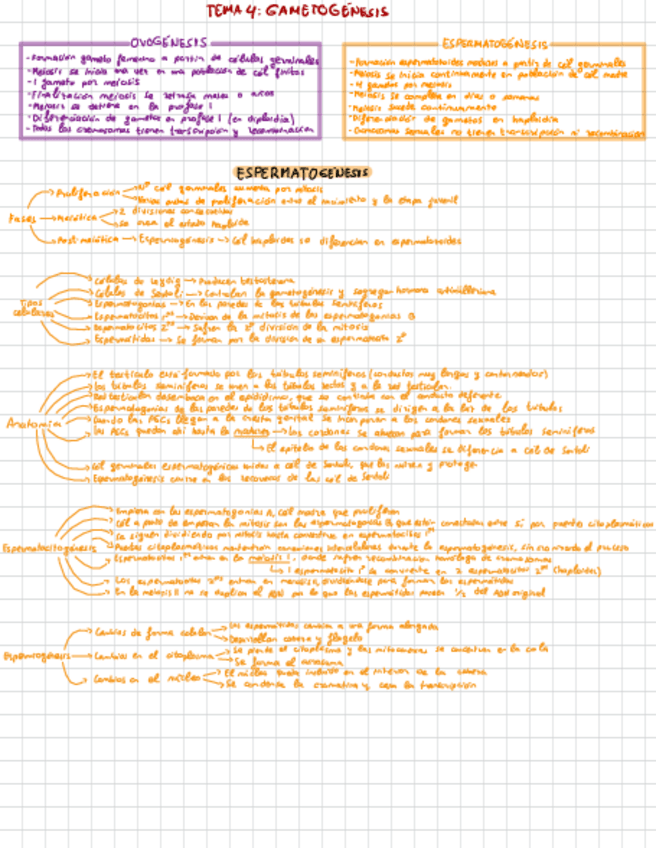 TEMA 4: GAMETOGÉNESIS
OVOGÉNESIS
-Formación gameto femenino a partir de células germinales
-Meiosis se inicia una vez en una población de cél finitas
-1 gameto por meiosis
-Finalización meiosis se retrasa meses o años
-Meiosis se detiene en la profase I
-Diferenciación de gametos en profase I (en diploidía)
-Todos los cromosomas tienen transcripción y recombinación
ESPERMATOGÉNESIS
-Formación espermatozoides maduros a partir de cél germinales
-Meiosis se inicia continuamente en población de cél madre
-4 gametos por meiosis
-Meiosis se completa en días o semanas
-Meiosis sucede continuamente
-Diferenciación de gametos en haploidía
-Cromosomas sexuales no tienen transcripción ni recombinación
ESPERMATOGÉNESIS
Fases
Proliferación
Nº cél germinales aumenta por mitosis
Varias ondas de proliferación entre el nacimiento y la etapa juvenil
Meiótica
2 divisiones consecutivas
Se crea el estado haploide
Post-meiótica → Espermiogénesis → Cél haploides se diferencian en espermatozoides
Tipos celulares
Células de Leydig → Producen testosterona
Células de Sertoli → Controlan la gametogénesis y segregan hormona antimülleriana
Espermatogonias → En las paredes de los túbulos seminíferos
Espermatocitos 1ºˢ → Derivan de la mitosis de las espermatogonias B
Espermatocitos 2ºˢ → Sufren la 2ª división de la mitosis
Espermátidas → Se forman por la división de un espermatocito 2º
Anatomía
El testículo está formado por los túbulos seminíferos (conductos muy largos y contorneados)
Los túbulos seminíferos se unen a los túbulos rectos y a la red testicular.
Red testicular desemboca en el epidídimo, que se continúa con el conducto deferente
Espermatogonias de las paredes de los túbulos seminíferos se dirigen a la luz de los túbulos
Cuando las PGCs llegan a la cresta genital se incorporan a los cordones sexuales
Las PGCs quedan ahí hasta la madurez → Los cordones se ahuecan para formar los túbulos seminíferos
El epitelio de los cordones sexuales se diferencia a cél de Sertoli
Cél germinales espermatogénicas unidas a cél de Sertoli, que las nutren y protegen
Espermatogénesis ocurre en los recovecos de las cél de Sertoli
Espermatocitogénesis
Empieza con las espermatogonias A, cél madre que proliferan
Cél a punto de empezar la mitosis son las espermatogonias B, que están conectadas entre sí por puentes citoplasmáticos
Se siguen dividiendo por mitosis hasta convertirse en espermatocitos 1ºˢ
Puentes citoplasmáticos mantendrán conexiones intercelulares durante la espermatogénesis, sincronizando el proceso
Espermatocitos 1ºˢ entran en la meiosis I, donde sufren recombinación homóloga de cromosomas
1 espermatocito 1º se convierte en 2 espermatocitos 2ºˢ (haploides)
Los espermatocitos 2ºˢ entran en meiosis, dividiéndose para formar las espermátidas
En la meiosis II no se duplica el ADN por lo que las espermátidas poseen 1/2 del ADN original
Espermiogénesis
Cambios de forma celular
Las espermátidas cambian a una forma alargada
Desarrollan cabeza y flagelo
Cambios en el citoplasma
Se pierde el citoplasma y las mitocondrias se concentran en la cola
Se forma el acrosoma
Cambios en el núcleo
El núcleo queda incluido en el interior de la cabeza
Se condensa la cromatina y cesa la transcripción